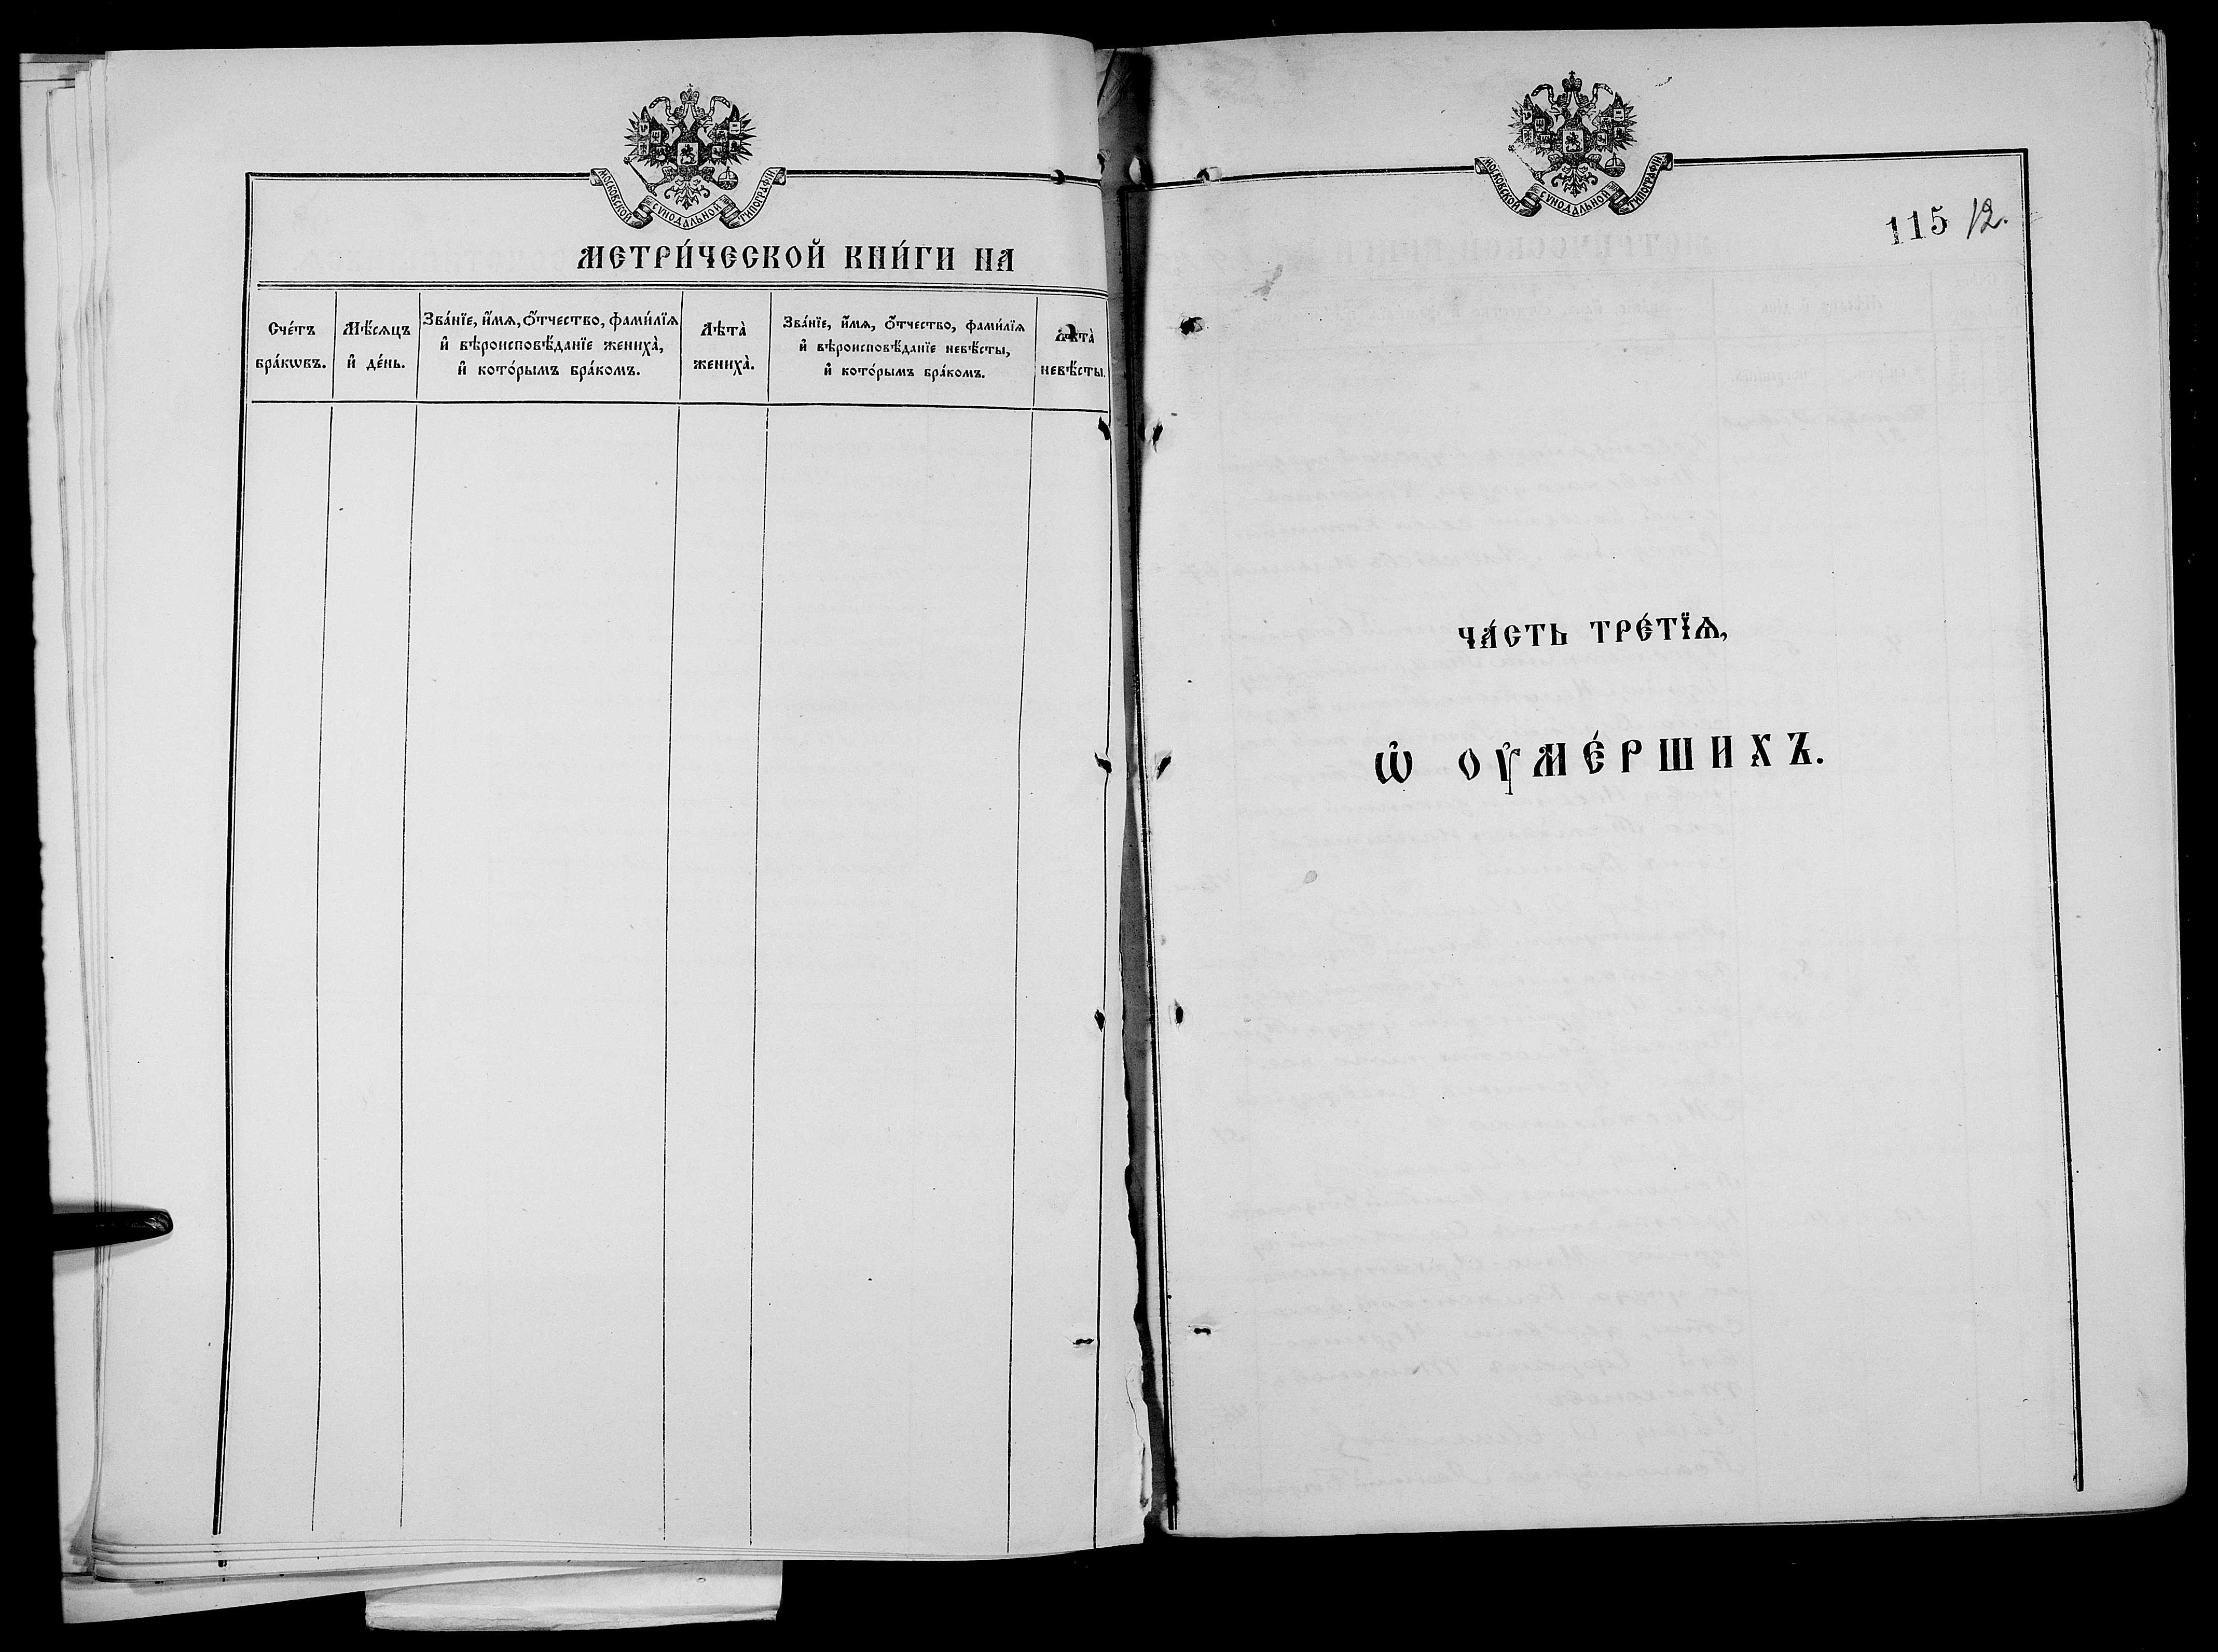 МОСКОВСКОЙ СѴНОДАЛЬНОЙ ТИПОГРАФІИ
МЕТРИ́ЧЕСКОЙ КНИ́ГИ НА
Сче́тъ
бра́кѡвъ.
Мѣ́сяцъ
и҆ де́нь.
Зва́нїе, и҆́мѧ, ѻ҆́тчество, фами́лїѧ
и҆ вѣроисповѣ́данїе жениха̀,
и҆ кото́рымъ бра́комъ.
Лѣта̀
жениха̀.
Зва́нїе, и҆́мѧ, ѻ҆́тчество, фами́лїѧ
и҆ вѣроисповѣ́данїе невѣ́сты,
и҆ кото́рымъ бра́комъ.
Лѣта̀
невѣ́сты.
МОСКОВСКОЙ СѴНОДАЛЬНОЙ ТИПОГРАФІИ
115 12.
ЧА́СТЬ ТРЕ́ТЇѦ,
Ѡ҆ ОУ҆МЕ́РШИХЪ.